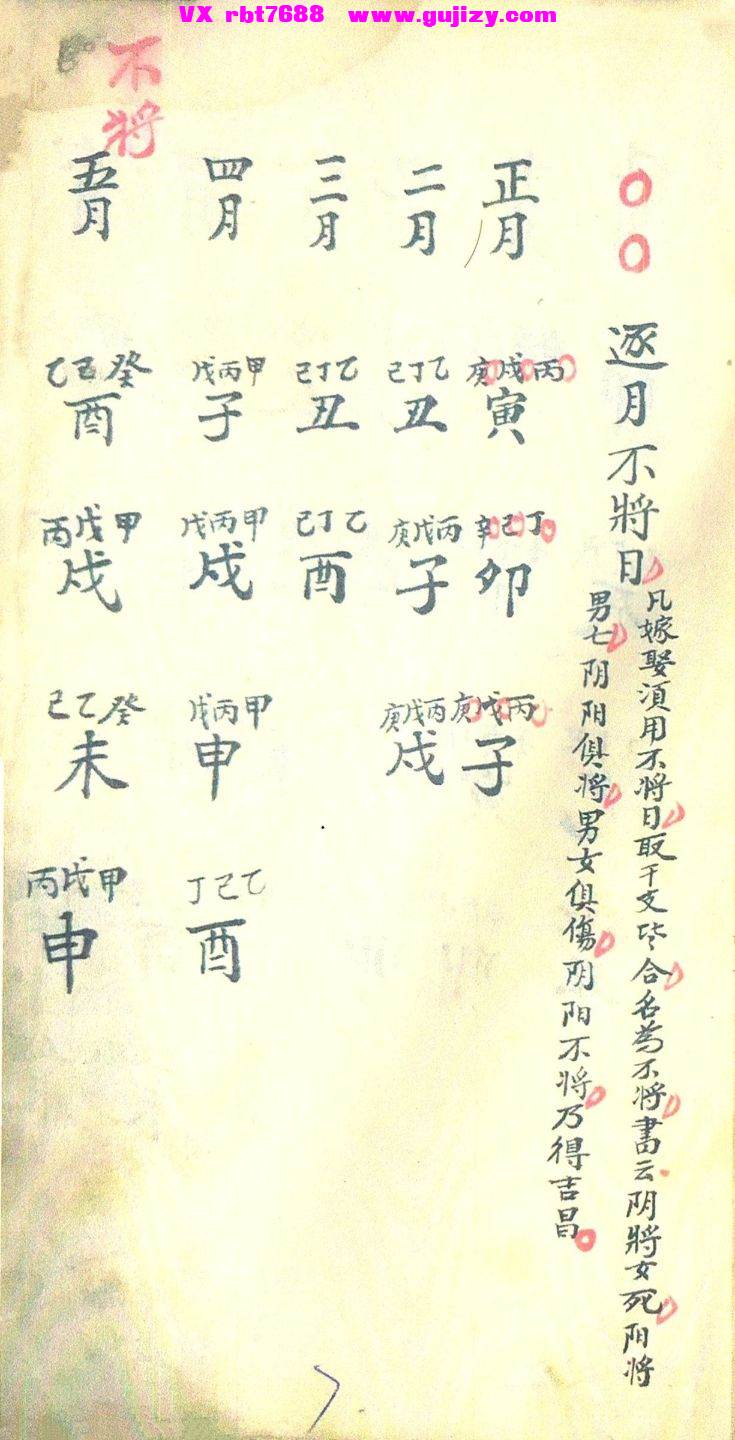 VX rbt7688 www.gujizy.com
不将
逐月不将日
凡嫁娶須用不将日取干支皆合名為不将書云阴將女死阳将
男七阴阳俱将男女俱傷阴阳不将乃得吉昌
正月
丙戊庚寅
丁己辛卯
丙戊庚子
二月
乙丁己丑
丙戊庚子
丙戊庚戌
三月
乙丁己丑
乙丁己酉
四月
甲丙戊子
甲丙戊戌
甲丙戊申
乙己丁酉
五月
癸五乙酉
甲戊丙戌
癸乙己未
甲戊丙申